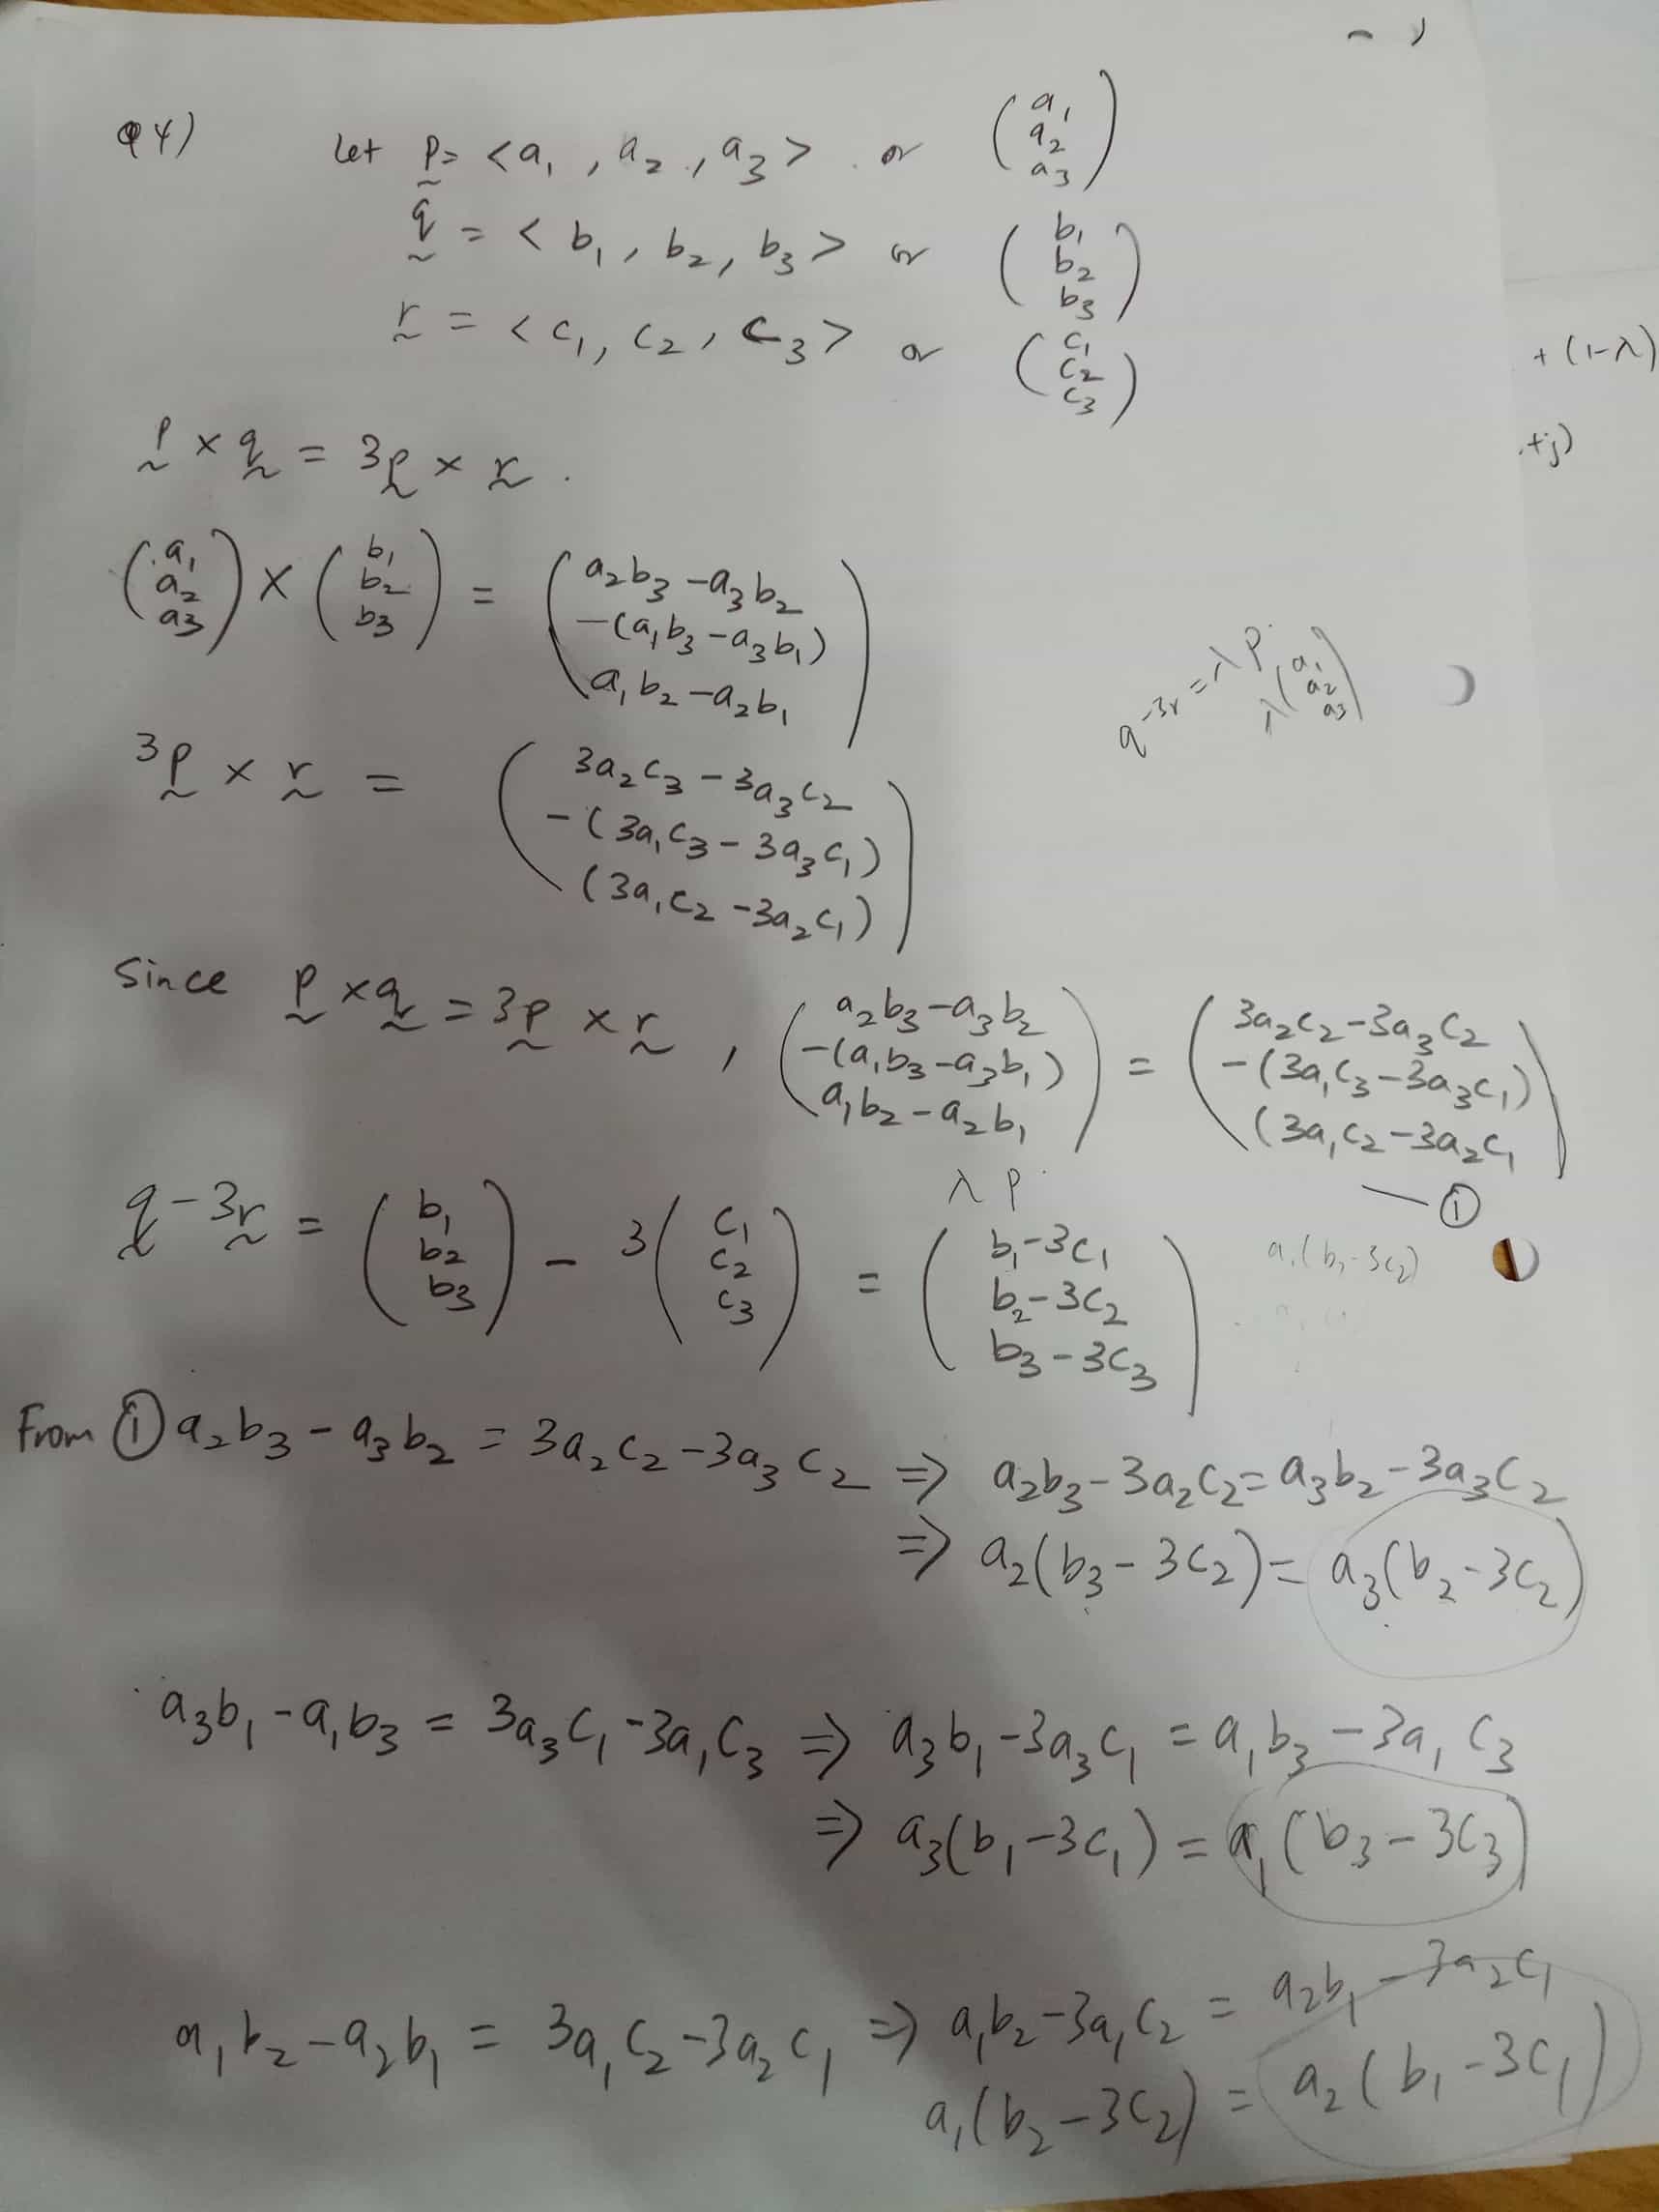 Q4) Let p = <a₁, a₂, a₃> or (a₁ a₂ a₃)
q = <b₁, b₂, b₃> or (b₁ b₂ b₃)
r = <c₁, c₂, c₃> or (c₁ c₂ c₃)
+ (1-λ)
+j)
p × q = 3p × r .
(a₁ a₂ a₃) × (b₁ b₂ b₃) = (a₂b₃ - a₃b₂
-(a₁b₃ - a₃b₁)
a₁b₂ - a₂b₁)
q - 3r = λ p
λ (a₁ a₂ a₃)
3p × r = (3a₂c₃ - 3a₃c₂
-(3a₁c₃ - 3a₃c₁)
(3a₁c₂ - 3a₂c₁))
Since p × q = 3p × r , (a₂b₃ - a₃b₂ -(a₁b₃ - a₃b₁) a₁b₂ - a₂b₁) = (3a₂c₂ - 3a₃c₂ -(3a₁c₃ - 3a₃c₁) (3a₁c₂ - 3a₂c₁)
— ①
λ p
q - 3r = (b₁ b₂ b₃) - 3 (c₁ c₂ c₃) = (b₁ - 3c₁ b₂ - 3c₂ b₃ - 3c₃)
From ① a₂b₃ - a₃b₂ = 3a₂c₂ - 3a₃c₂ ⇒ a₂b₃ - 3a₂c₂ = a₃b₂ - 3a₃c₂
⇒ a₂(b₃ - 3c₂) = a₃(b₂ - 3c₂)
a₃b₁ - a₁b₃ = 3a₃c₁ - 3a₁c₃ ⇒ a₃b₁ - 3a₃c₁ = a₁b₃ - 3a₁c₃
⇒ a₃(b₁ - 3c₁) = a₁(b₃ - 3c₃)
a₁b₂ - a₂b₁ = 3a₁c₂ - 3a₂c₁ ⇒ a₁b₂ - 3a₁c₂ = a₂b₁ - 3a₂c₁
a₁(b₂ - 3c₂) = a₂(b₁ - 3c₁)